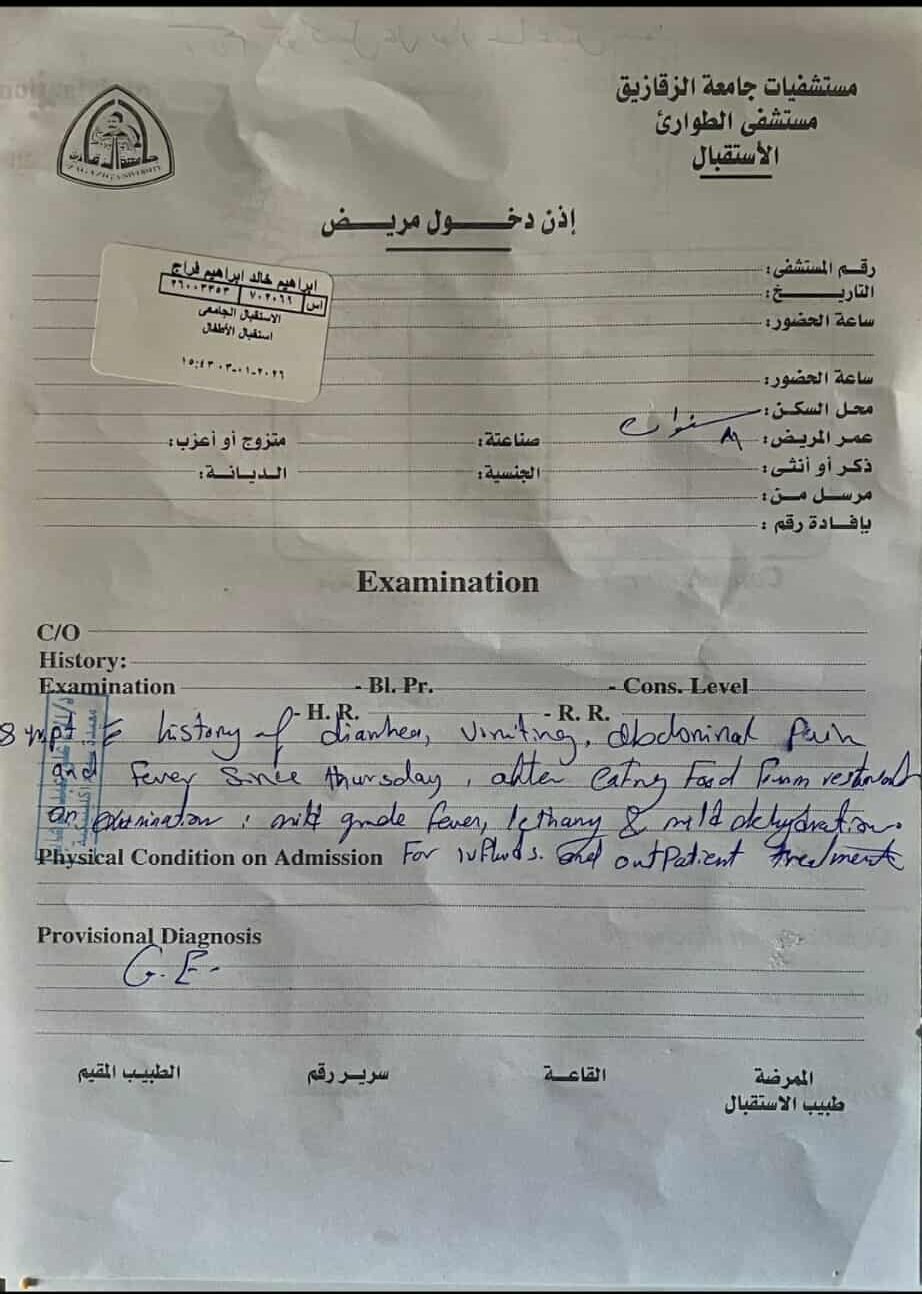 مستشفيات جامعة الزقازيق
مستشفى الطوارئ
الأستقبال
ZAGAZIG UNIVERSITY
إذن دخــــول مريـــض
ابراهيم خالد ابراهيم فراج
اس ٧٠٢٠٦٦ ٢٦٠٠٣٣٥٣
الاستقبال الجامعى
استقبال الأطفال
١٥:٤٣ ٠٣-٠١-٢٠٢٦
رقـم المستشفى:
التاريـــــخ:
ساعة الحضور:
ساعة الحضور:
محل السكن:
عمر المريض: ٨ سنوات صناعتة: متزوج أو أعزب:
ذكر أو أنثى: الجنسية: الـديـانـة:
مرسـل مـن:
بإفـادة رقم :
Examination
C/O
History:
Examination - Bl. Pr. - Cons. Level
- H. R. - R. R.
history of diarrhea, vomiting, abdominal pain
and fever since thursday, after eating food from
on examination: mild grade fever, lethargy & mild dehydration.
Physical Condition on Admission For iv fluids. and outpatient treatment
Provisional Diagnosis
G.E.
الممرضة القاعــة سريـر رقم الطبيب المقيم
طبيب الاستقبال